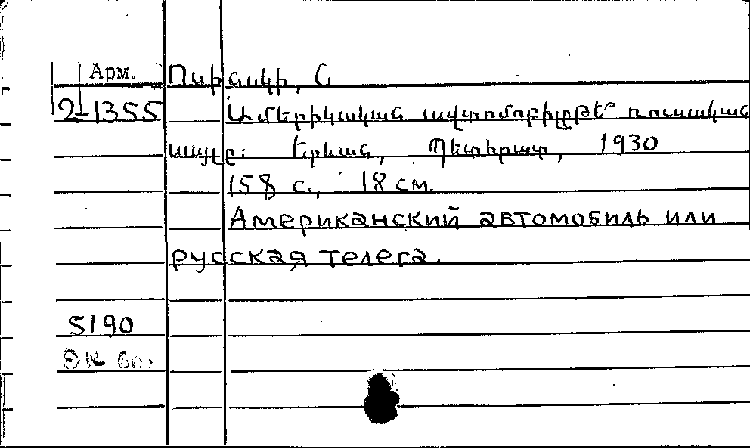 Арм. Օսինսկի, Ն
2-1355 Ամերիկական ավտոմոբիլըթե՞ ռուսական
սայլը: Երևան, Պետհրատ, 1930
158 с., 18 см.
Американский автомобиль или
русская телега.
5190